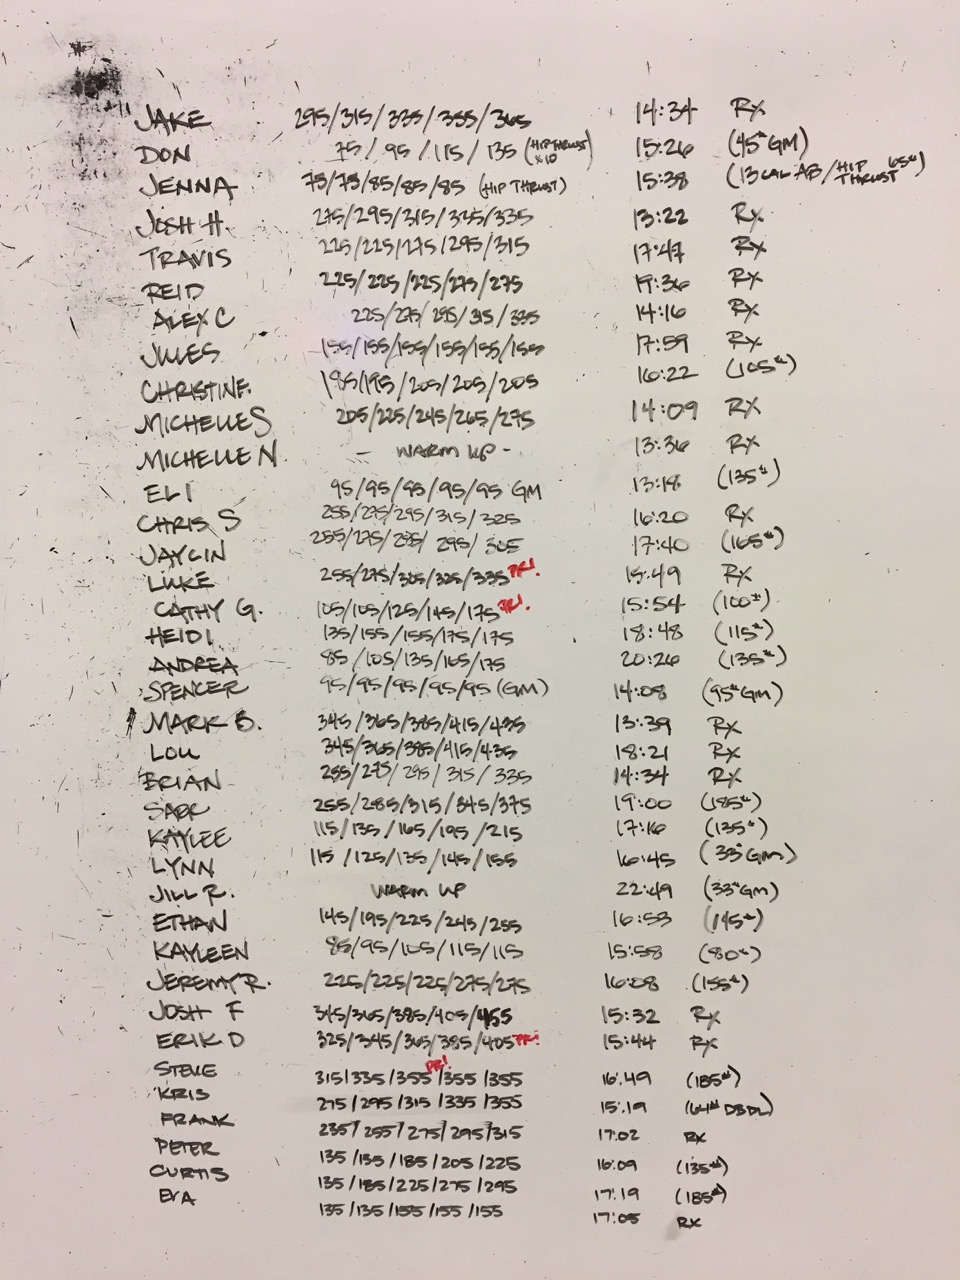 JAKE 295/315/335/355/365 14:34 RX
DON 75/95/115/135 (HIP THRUST X10) 15:26 (45# GM)
JENNA 75/75/85/85/85 (HIP THRUST) 15:38 (13 CAL AB/HIP THRUST 65#)
JOSH H. 275/295/315/335/335 13:22 RX
TRAVIS 225/225/275/295/315 17:47 RX
REID 225/225/225/275/275 19:36 RX
ALEX C 225/275/295/315/335 14:16 RX
JULES 155/155/155/155/155/155 17:59 RX
CHRISTINE 185/195/205/205/205 16:22 (105#)
MICHELLE S 205/225/245/265/275 14:09 RX
MICHELLE N - WARM UP - 13:36 RX
ELI 95/95/95/95/95 GM 13:18 (135#)
CHRIS S 255/275/295/315/325 16:20 RX
JAYLIN 255/275/295/295/305 17:40 (165#)
LUKE 255/275/305/325/335 PR! 15:49 RX
CATHY G. 105/105/125/145/175 PR! 15:54 (100#)
HEIDI 135/155/155/175/175 18:48 (115#)
ANDREA 85/105/135/165/175 20:26 (135#)
SPENCER 95/95/95/95/95 (GM) 14:08 (95# GM)
MARK B. 345/365/385/415/435 13:39 RX
LOU 345/365/385/415/435 18:21 RX
BRIAN 255/275/295/315/335 14:34 RX
255/285/315/345/375 19:00 (185#)
KAYLEE 115/135/165/195/215 17:16 (135#)
LYNN 115/125/135/145/155 16:45 (33# GM)
JILL R. WARM UP 22:49 (33# GM)
ETHAN 145/195/225/245/255 16:53 (145#)
KAYLEEN 85/95/105/115/115 15:58 (80#)
JEREMY R. 225/225/225/275/275 16:08 (155#)
JOSH F 345/365/385/405/455 15:32 RX
ERIK D 325/345/365/385/405 PR! 15:44 RX
STEVE 315/335/355 PR!/355/355 16:49 (185#)
KRIS 275/295/315/335/355 15:19 (64# DBDL)
FRANK 235/255/275/295/315 17:02 RX
PETER 135/135/185/205/225 16:09 (135#)
CURTIS 135/185/225/275/295 17:19 (185#)
EVA 135/135/155/155/155 17:05 RX